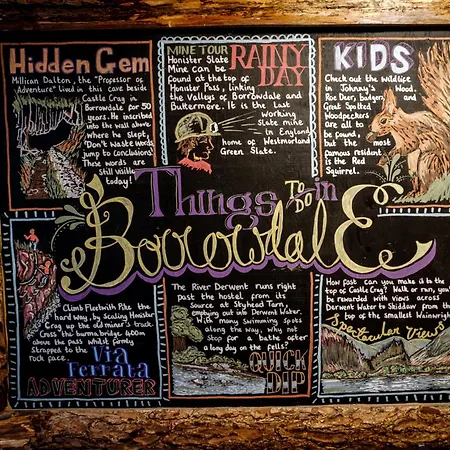 Hidden Gem
Millican Dalton, the "Professor of
Adventure" lived in this cave beside
Castle Crag in
Borrowdale for 50
years. He inscribed
into the wall above
where he slept,
"Don't waste words
jump to Conclusions"
These words are
still visible
today!
MINE TOUR RAINY
DAY
Honister Slate
Mine can be
found at the top of
Honister Pass, linking
the Valleys of Borrowdale and
Buttermere. It is the last
working
Slate mine
in England
home of Westmorland
Green Slate.
KIDS
Check out the wildlife
in Johnny's Wood.
Roe Deer, badgers and
Great Spotted
Woodpeckers
are all to
be found,
but the most
famous resident
is the Red
Squirrel.
Things TO DO in
BorrowdalE
Climb Fleetwith Pike the
hard way, by scaling Honister
Crag up the old miner's track.
Cross the burma bridge 2000ft
above the pass whilst firmly
Strapped to the
rock face.
Via
Ferrata
ADVENTURER
The River Derwent runs right
past the hostel from its
Source at Styhead Tarn,
emptying out into Derwent Water.
With many Swimming Spots
along the way, why not
Stop for a bathe after
a long day on the fells?
QUICK
DIP
How fast can you make it to the
top of Castle Crag? Walk or run, you'll
be rewarded with views across
Derwent Water to Skiddaw from the
top of the smallest Wainwright
Spectacular Views